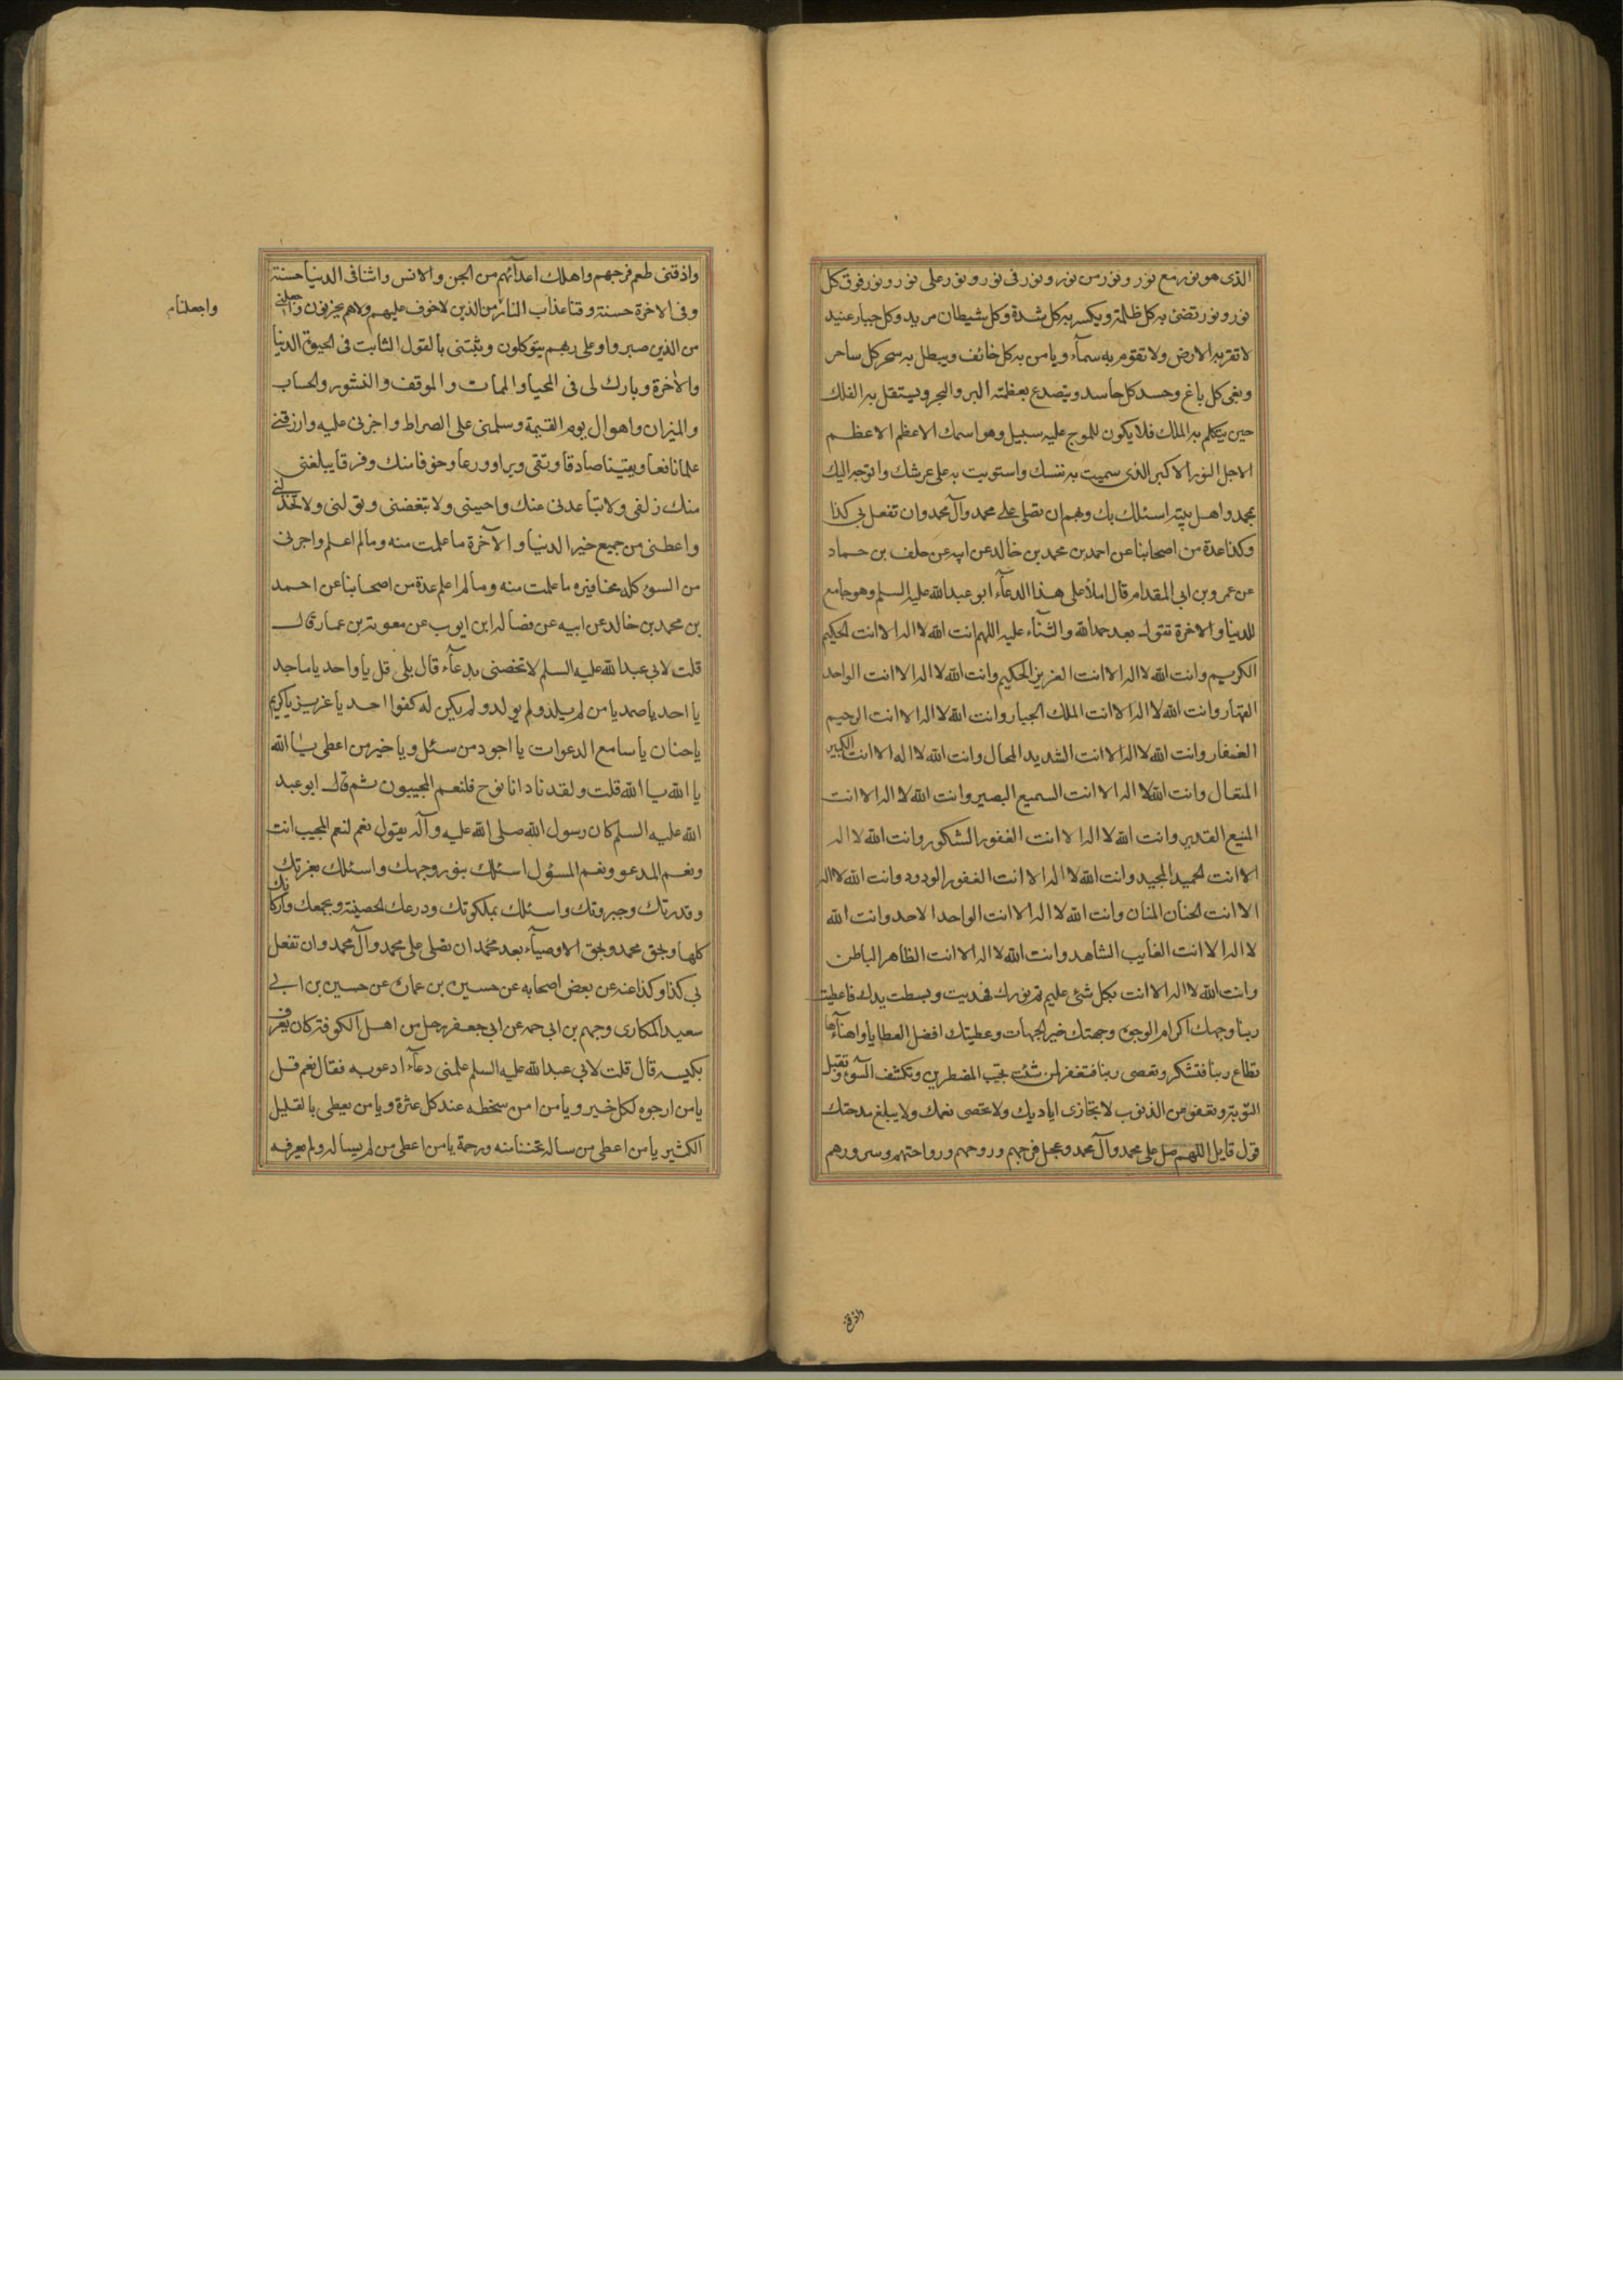 الذى هو نور مع نور و نور من نور و نور فى نور و نور على نور و نور فوق كل
نور و نور تضئ به كل ظلمة و يكسر به كل شدة و كل شيطان مريد و كل جبار عنيد
لا تقر به الارض ولا تقوم به سمآء و يامن به كل خائف و يبطل به سحر كل ساحر
و بغى كل باغ و حسد كل حاسد و يتصدع بعظمته البر و البحر و يستقل به الفلك
حين يتكلم به الملك فلا يكون للموج عليه سبيل وهو اسمك الاعظم الاعظم
الاجل النور الاكبر الذى سميت به نفسك و استويت به على عرشك و اتوجه اليك
بمحمد و اهل بيته اسئلك بك و بهم ان تصلى على محمد و آل محمد و ان تفعل بى كذا
وكذا عدة من اصحابنا عن احمد بن محمد بن خالد عن ابيه عن خلف بن حماد
عن عمرو بن ابى المقدام قال املأ على هذا الدعآء ابو عبد الله عليه السلم وهو جامع
للدنيا و الاخرة تقول بعد حمد الله و الثنآء عليه اللهم انت الله لا اله الا انت الحكيم
الكريم وانت الله لا اله الا انت العزيز الحكيم وانت الله لا اله الا انت الواحد
القهار وانت الله لا اله الا انت الملك الجبار وانت الله لا اله الا انت الرحيم
الغفار وانت الله لا اله الا انت الشديد المحال وانت الله لا اله الا انت الكبير
المتعال وانت الله لا اله الا انت السميع البصير وانت الله لا اله الا انت
المنيع القدير وانت الله لا اله الا انت الغفور الشكور وانت الله لا اله
الا انت الحميد المجيد وانت الله لا اله الا انت الغفور الودود وانت الله لا اله
الا انت الحنان المنان وانت الله لا اله الا انت الواحد الاحد وانت الله
لا اله الا انت الغايب الشاهد وانت الله لا اله الا انت الظاهر الباطن
وانت الله لا اله الا انت بكل شئ عليم تم نورك فهديت و بسطت يدك فاعطيت
ربنا وجهك اكرم الوجوه و جهتك خير الجهات و عطيتك افضل العطايا و اهنآءها
تطاع ربنا فتشكر و تعصى ربنا فتغفر لمن شئت تجيب المضطرين و تكشف السوٓء و تقبل
التوبة و تعفو عن الذنوب لا تجازى اياديك ولا تحصى نعمك ولا يبلغ مدحتك
قول قايل اللهم صل على محمد و آل محمد و عجل فرجهم و روحهم و راحتهم و سرورهم
واذقنى
واذقنى طعم فرجهم و اهلك اعدآئهم من الجن و الانس و اتنا فى الدنيا حسنة
و فى الاخرة حسنة و قنا عذاب النار من الذين لا خوف عليهم ولا هم يحزنون و اجعلنى
واجعلنا
من الذين صبروا و على ربهم يتوكلون و ثبتنى بالقول الثابت فى الحيوة الدنيا
والاخرة و بارك لى فى المحيا و الممات و الموقف و النشور و الحساب
و الميزان و اهوال يوم القيمة و سلمنى على الصراط و اجزنى عليه و ارزقنى
علما نافعا و يقينا صادقا و تقى و برا و ورعا و خوفا منك و فرقا يبلغنى
منك زلفى ولا تباعدنى عنك و احببنى ولا تبغضنى و تولنى ولا تخذلنى
و اعطنى من جميع خير الدنيا و الآخرة ما علمت منه و مالم اعلم و اجرنى
من السوء كله بحذافيره ما علمت منه و مالم اعلم عدة من اصحابنا عن احمد
بن محمد بن خالد عن ابيه عن فضاله ابن ايوب عن معوية بن عمار قال
قلت لابى عبد الله عليه السلم لا تخصنى بدعآء قال بلى قل يا واحد يا ماجد
يا احد يا صمد يا من لم يلد ولم يولد ولم يكن له كفوا احد يا عزيز يا كريم
يا حنان يا سامع الدعوات يا اجود من سئل و يا خير من اعطى يا الله
يا الله يا الله قلت و لقد نادانا نوح فلنعم المجيبون ثم قال ابو عبد
الله عليه السلم كان رسول الله صلى الله عليه و آله يقول نعم لنعم المجيب انت
و نعم المدعو و نعم المسؤل اسئلك بنور وجهك و اسئلك بعزتك
و قدرتك و جبروتك و اسئلك بملكوتك و درعك الحصينة و بجمعك و اركانك
كلها و بحق محمد و بحق الاوصيآء بعد محمد ان تصلى على محمد و آل محمد و ان تفعل
بى كذا و كذا عنه عن بعض اصحابه عن حسين بن عمارة عن حسين بن ابى
سعيد المكارى و جهم بن ابى جهمه عن ابى جعفر رجل من اهل الكوفة كان يعرف
بكنيته قال قلت لابى عبد الله عليه السلم علمنى دعآء ادعو به فقال نعم قل
يا من ارجوه لكل خير و يا من امن سخطه عند كل عثرة و يا من يعطى بالقليل
الكثير يا من اعطى من ساله تحننا منه و رحمة يا من اعطى من لم يساله ولم يعرفه